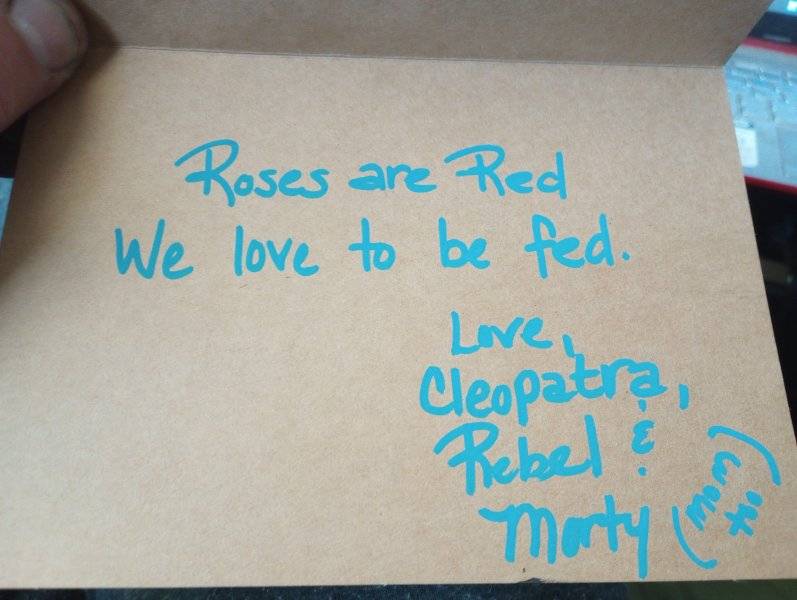 Roses are Red
We love to be fed.
Love,
Cleopatra,
Rebel &
Morty